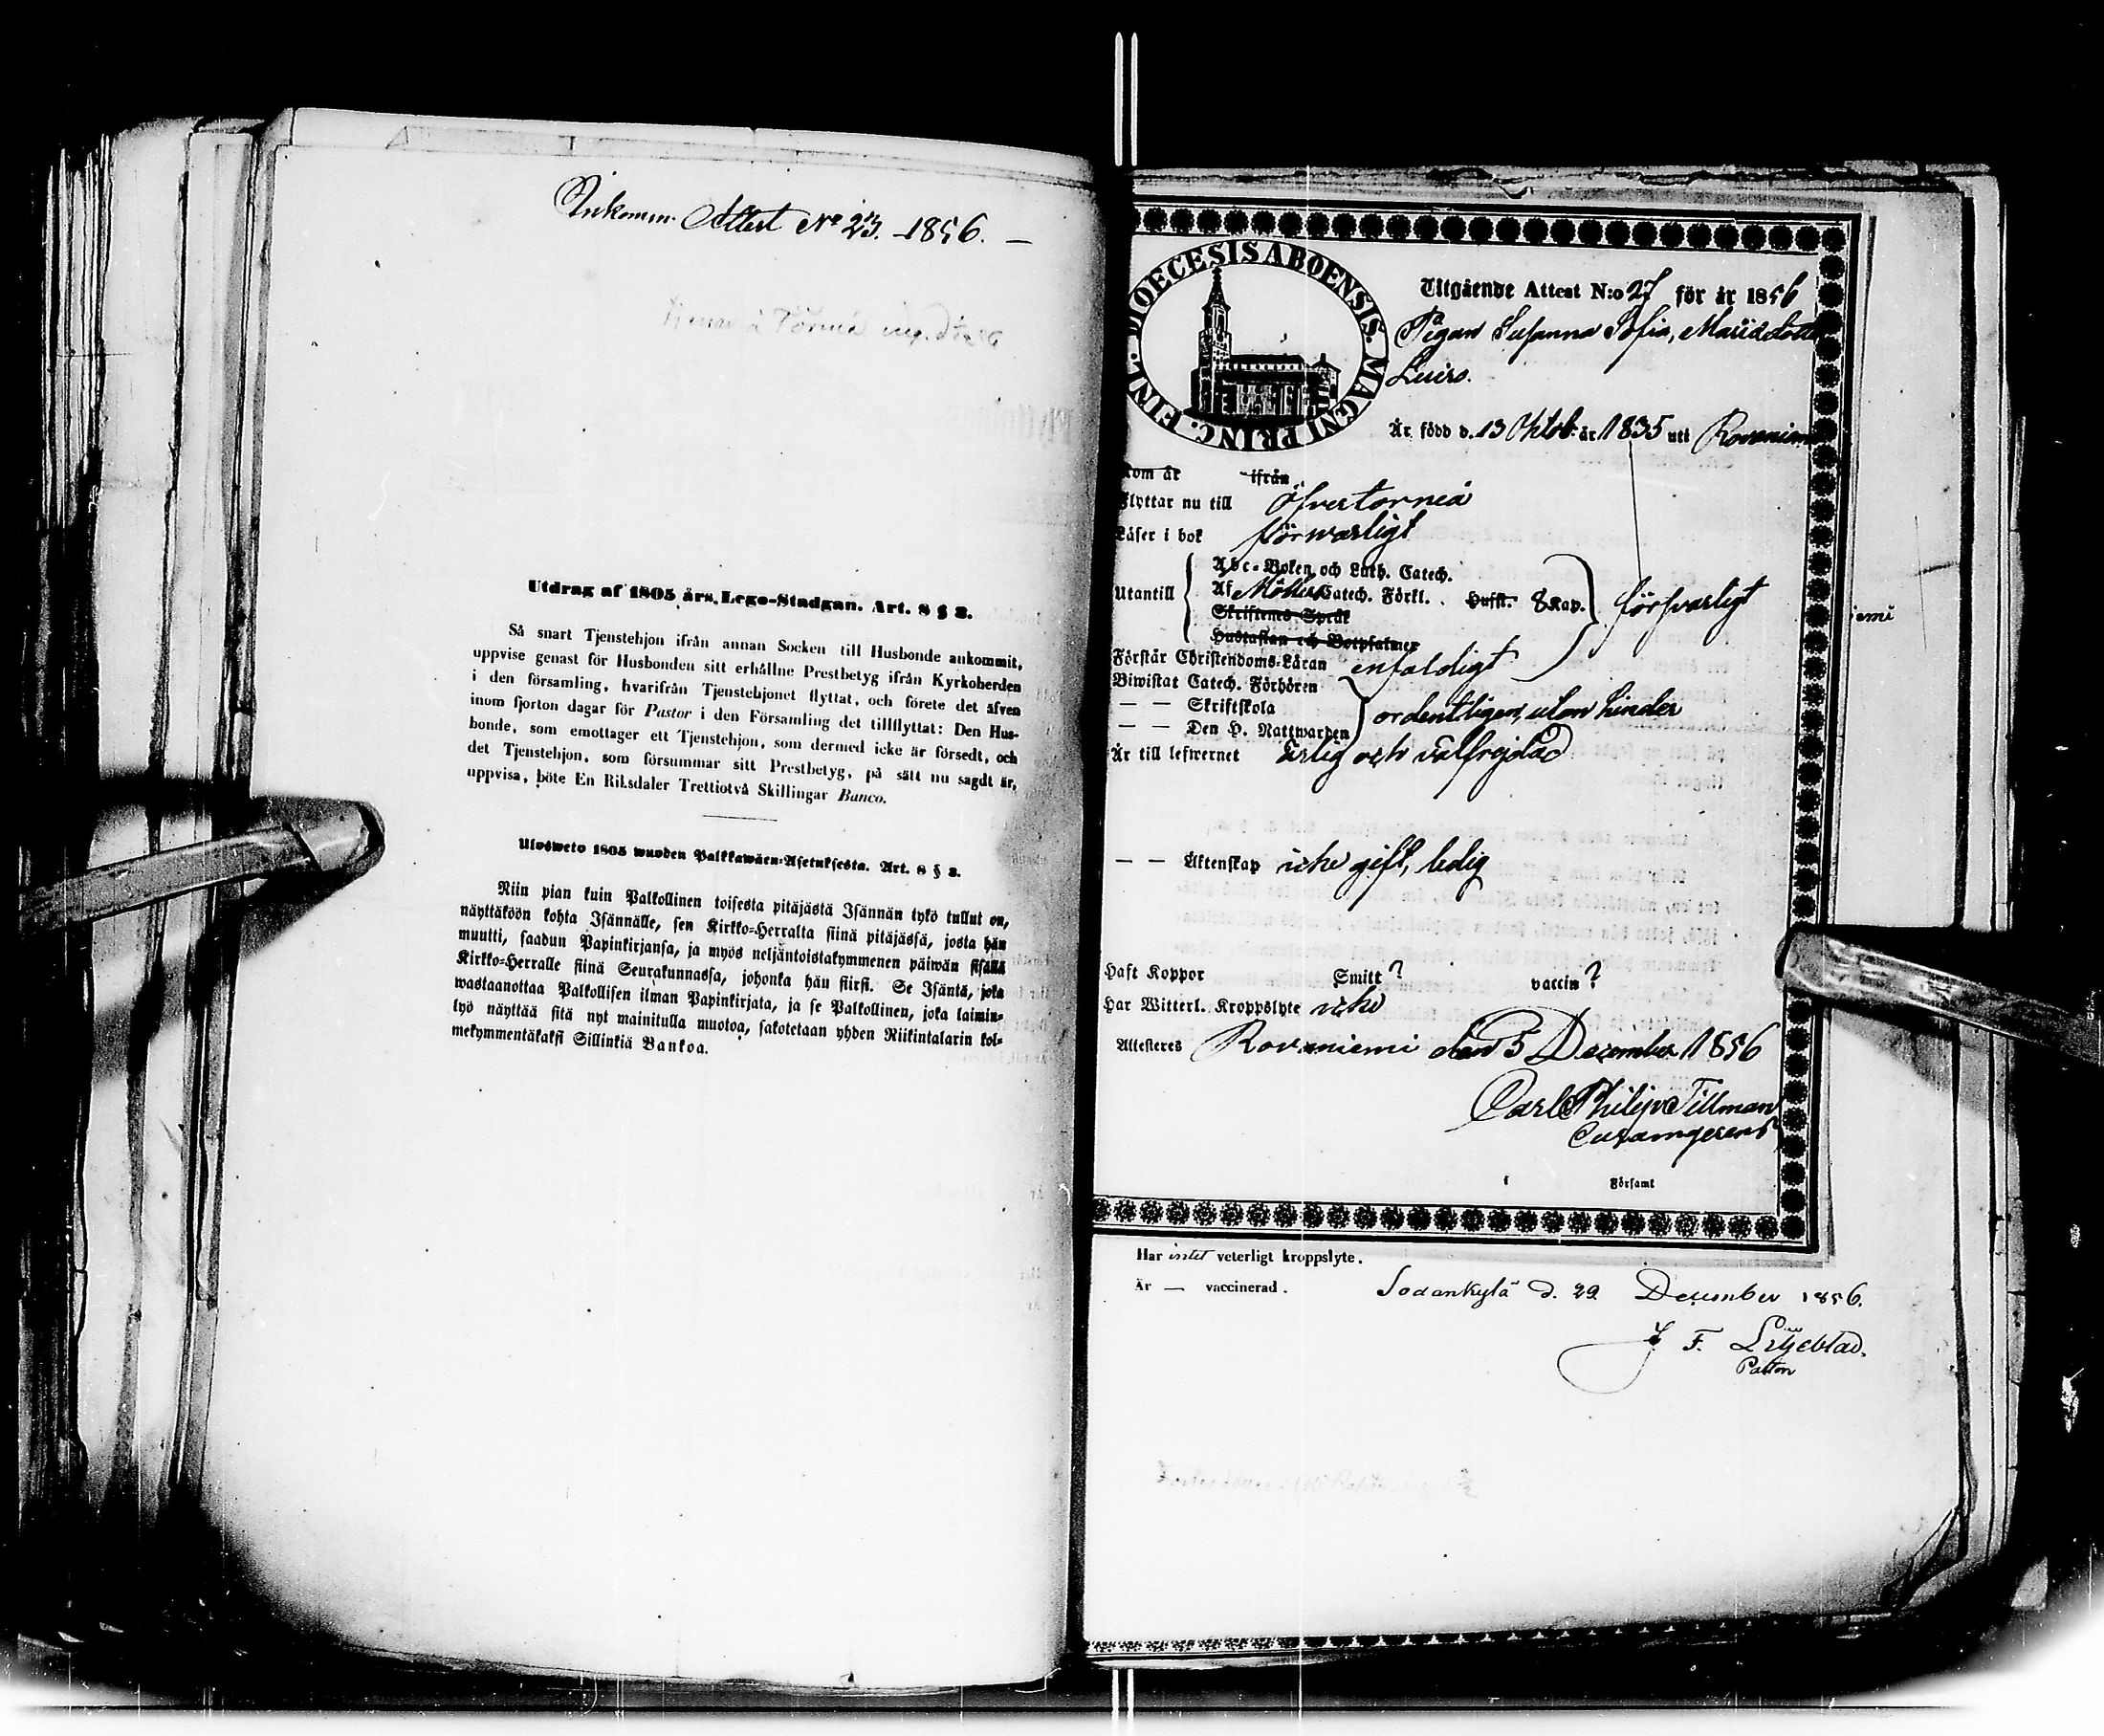 Inkomm. Attest No 23. 1856. —
Utdrag af 1805 års Lego-Stadgan. Art. 8 § 3.
Så snart Tjenstehjon ifrån annan Socken till Husbonde ankommit,
uppvise genast för Husbonden sitt erhållne Prestbetyg ifrån Kyrkoherden
i den församling, hvarifrån Tjenstehjonet flyttat, och förete det äfven
inom fjorton dagar för Pastor i den Församling det tillflyttat: Den Hus-
bonde, som emottager ett Tjenstehjon, som dermed icke är försedt, och
det Tjenstehjon, som försummar sitt Prestbetyg, på sätt nu sagdt är,
uppvisa, böte En Riksdaler Trettiotvå Skillingar Banco.
Ulosweto 1805 wuoden Palkkawäen-Asetuksesta. Art. 8 § 3.
Niin pian kuin Palkollinen toisesta pitäjästä Isännän tykö tullut on,
näyttäköön kohta Isännälle, sen Kirkko-Herralta siinä pitäjässä, josta hän
muutti, saadun Papinkirjansa, ja myös neljäntoistakymmenen päiwän sisällä
Kirkko-Herralle siinä Seurakunnassa, johonka hän siirsi. Se Isäntä, joka
wastaanottaa Palkollisen ilman Papinkirjata, ja se Palkollinen, joka laimin-
lyö näyttää sitä nyt mainitulla muotoa, sakotetaan yhden Riikintalarin kol-
mekymmentäkaksi Sillinkiä Bankoa.
DIOECESIS ABOENSIS. MAGNI PRINC. FINL.
Utgående Attest N:o 27 för år 1856
Pigan Susanna Sofia, Mariædotter
Luiro.
Är född d. 13 Oktob. år 1835 uti Rovaniemi
Kom år ifrån
Flyttar nu till Öfvertorneå
Läser i bok förswarligt
Utantill
Abc-Boken och Luth. Catech.
Af Möllers Catech. Förkl. Husfl. 8 Kap.
Skriftenes Språk
Hustaflan och Botpsalmer
försvarligt
Förstår Christendoms-Läran enfaldigt
Biwistat Catech. Förhören
— — Skriftskola
— — Den H. Nattwarden
ordentligen, utan hinder
Är till lefwernet ärlig och välfrejdad
— — Äktenskap icke gift, ledig
Haft Koppor Smitt ? vaccin ?
Har Witterl. Kroppslyte icke
Attesteres Rovaniemi den 5 December 1856
Carl Philip Tillman
Curamgerens
Församl
iemi
Har intet veterligt kroppslyte.
Är — vaccinerad.
Sodankylä d. 29 December 1856.
J F. Liljeblad.
Pastor